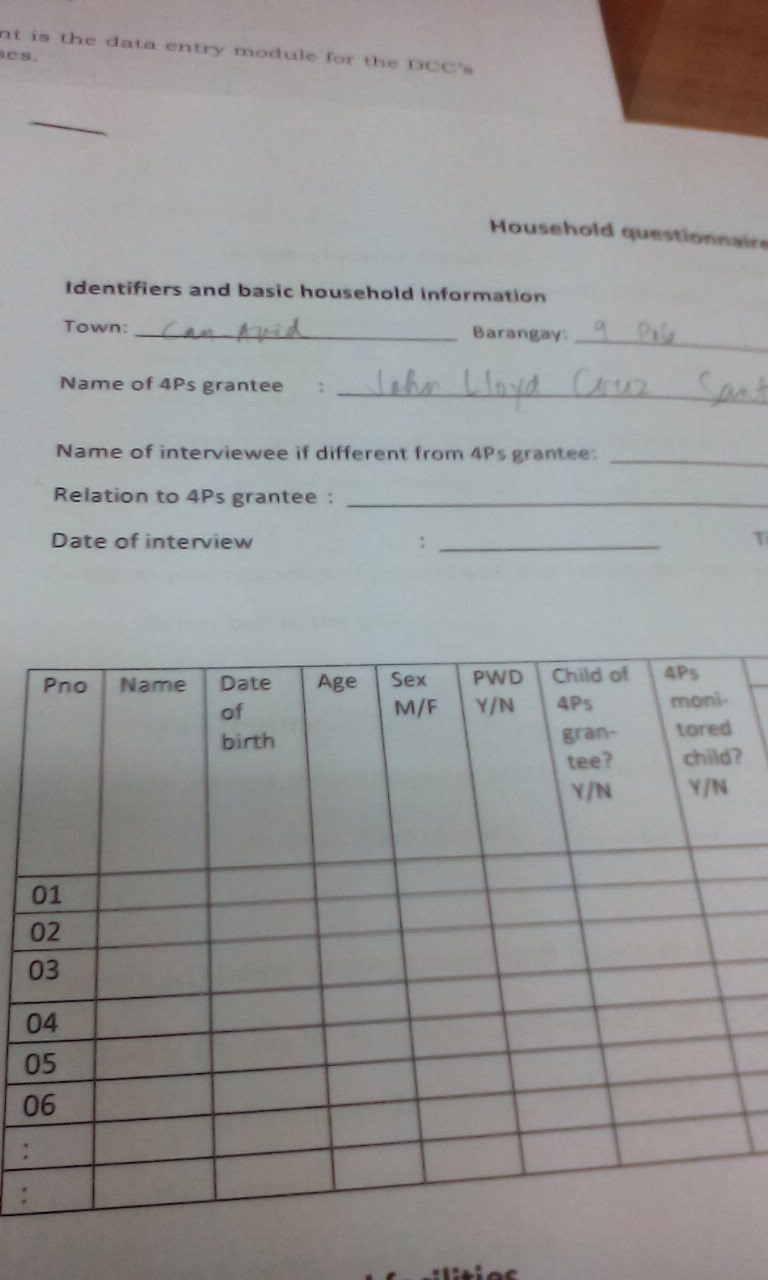 nt is the data entry module for the DCC's
ses.
Household questionnaire
Identifiers and basic household information
Town: Can Avid Barangay: 9
Name of 4Ps grantee : John Lloyd Cruz
Name of interviewee if different from 4Ps grantee:
Relation to 4Ps grantee :
Date of interview :
Pno Name Date of birth Age Sex M/F PWD Y/N Child of 4Ps gran-tee? Y/N 4Ps moni-tored child? Y/N
01
02
03
04
05
06
:
: